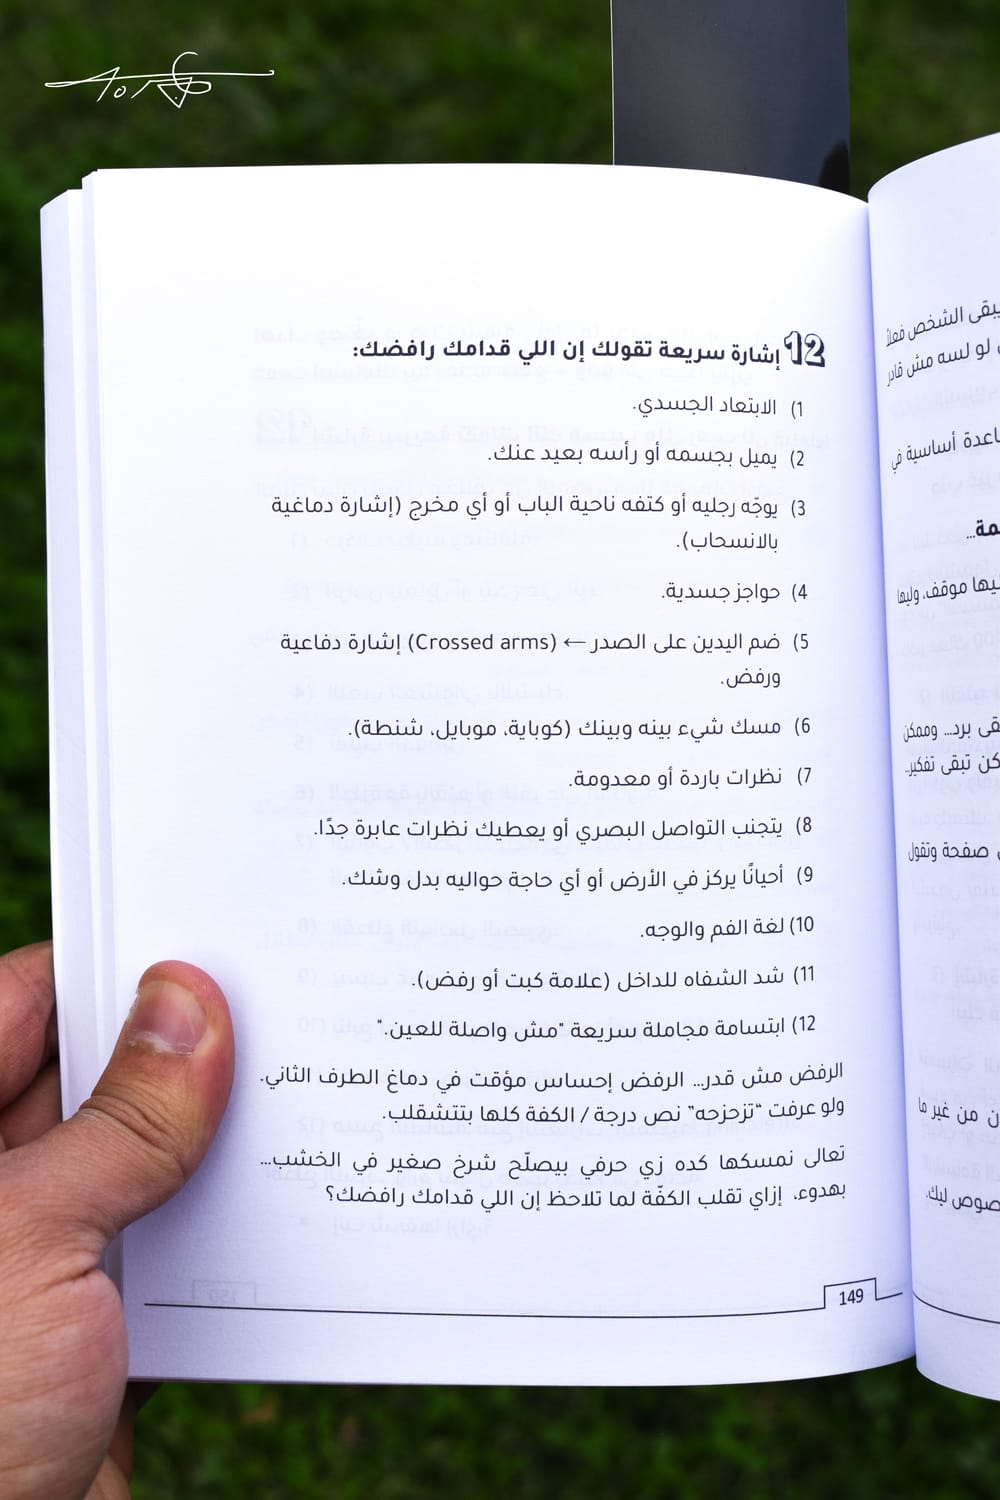 12 إشارة سريعة تقولك إن اللي قدامك رافضك:
1) الابتعاد الجسدي.
2) يميل بجسمه أو رأسه بعيد عنك.
3) يوجّه رجليه أو كتفه ناحية الباب أو أي مخرج (إشارة دماغية
بالانسحاب).
4) حواجز جسدية.
5) ضم اليدين على الصدر ← (Crossed arms) إشارة دفاعية
ورفض.
6) مسك شيء بينه وبينك (كوباية، موبايل، شنطة).
7) نظرات باردة أو معدومة.
8) يتجنب التواصل البصري أو يعطيك نظرات عابرة جدًا.
9) أحيانًا يركز في الأرض أو أي حاجة حواليه بدل وشك.
10) لغة الفم والوجه.
11) شد الشفاه للداخل (علامة كبت أو رفض).
12) ابتسامة مجاملة سريعة "مش واصلة للعين."
الرفض مش قدر... الرفض إحساس مؤقت في دماغ الطرف الثاني.
ولو عرفت "تزحزحه" نص درجة / الكفة كلها بتتشقلب.
تعالى نمسكها كده زي حرفي بيصلّح شرخ صغير في الخشب...
بهدوء، إزاي تقلب الكفّة لما تلاحظ إن اللي قدامك رافضك؟
149
يبقى الشخص فعلاً
لو لسه مش قادر
أساسية في
ليها موقف، وليها
برد... وممكن
تبقى تفكير..
صفحة وتقول
من غير ما
ليك.